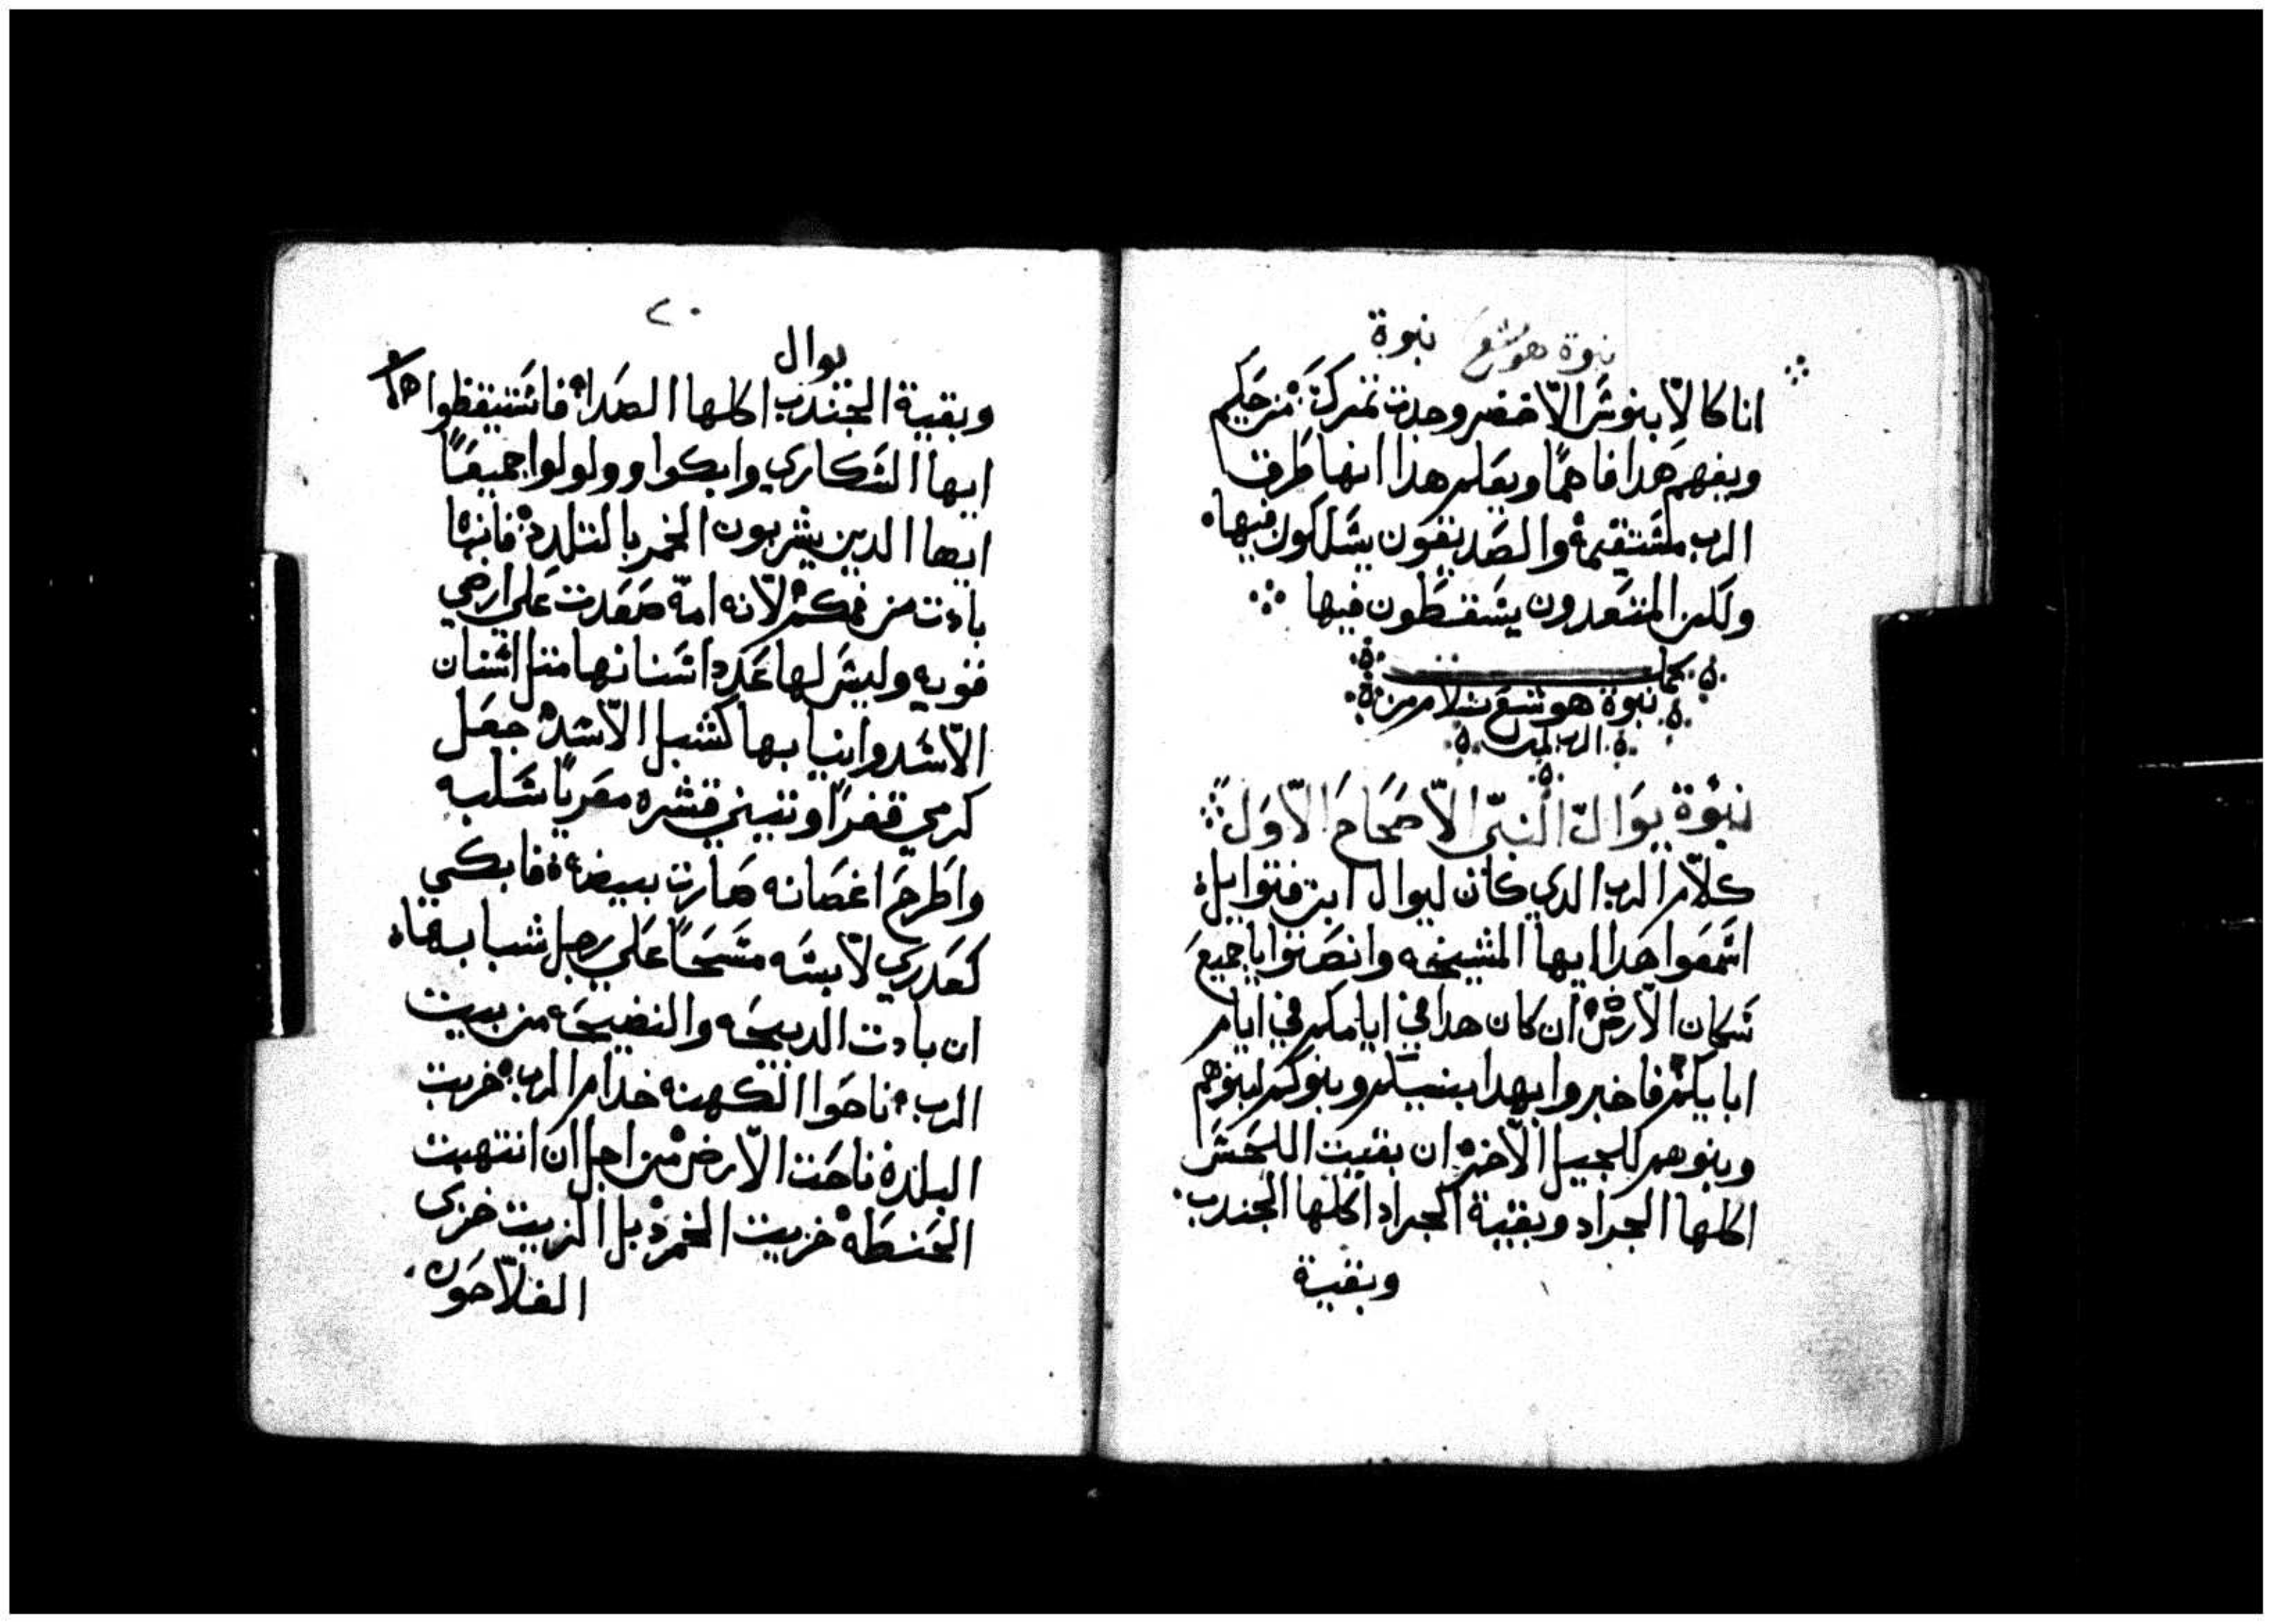 نبوة هوشع نبوة
انا كالابنوش الاخضر وجدت ثمركَ: من حكيم
ويفهم هدا فاهمًا ويعلم هذا انها طرق
الرب مشتقيمة والصديقون يشلكون فيها
ولكن المتعدون يشقطون فيها
كملت
نبوة هوشع بشلام من
الرب امين
نبوة يوال النبي الاصحاح الاول
كلام الرب الدي كان ليوال ابن فتوايل
اشمعوا هدا ايها المشيخه وانصتوا يا جميع
شكان الارض ان كان هدا في ايامكم في ايام
ابايكم فاخبروا بهدا بنيكم وبنوكم لبنوهم
وبنوهم للجيل الاخر ان بقيت اللحش
اكلها الجراد وبقية الجراد اكلها الجندب
وبقية
٢٠
يوال
وبقية الجندب اكلها الصدا فاشتيقظوا
ايها الشكاري وابكوا وولولوا جميعًا
ايها الدين يشربون الخمر بالتلدد فانها
بادت من فمكم لانه امة صعدت علي ارضي
قويه وليش لها عدد اشنانها مثل اشنان
الاشد وانيابها كشبل الاشد جعل
كرمي قفرًا وتيني قشره معريًا شلبه
واطرح اغصانه صارت بييضة فابكي
كعدري لابشه مشحًا علي رجل شبابها
ان بادت الدبيحه والنضيحه من بييت
الرب ناحوا الكهنه خدام الرب خربت
البلدة ناحت الارض من اجل ان انتهبت
الحنطه خزيت الخمر دبل الزيت خزى
الفلاحون